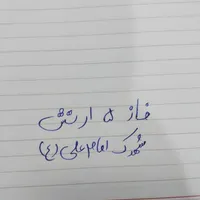 فاز ۵ ارتش
شهرک امام علی (ع)